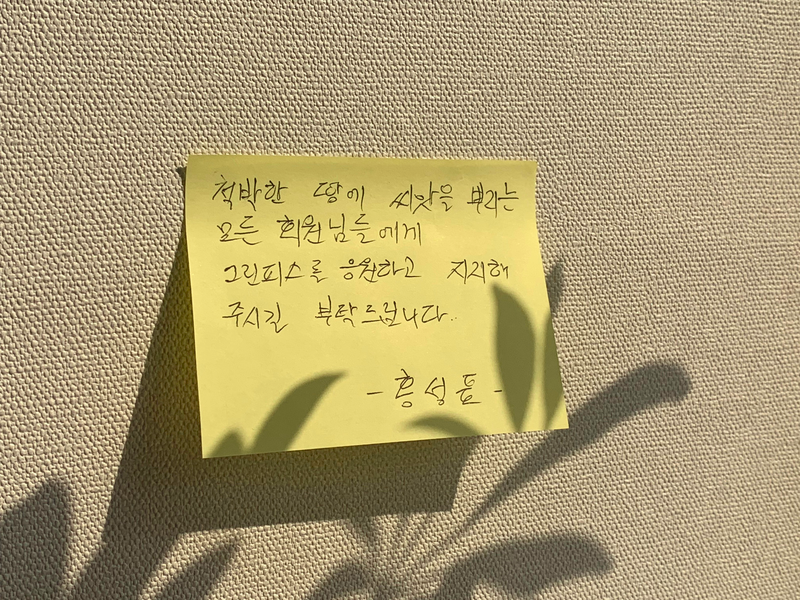 척박한 땅에 씨앗을 뿌리는
모든 회원님들에게
그린피스를 응원하고 지지해
주시길 부탁드립니다..
- 홍성